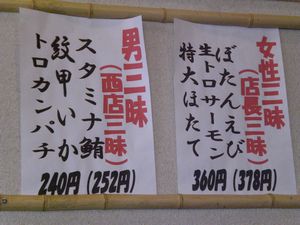 女性三昧
(店長三昧)
ぼたんえび
生トロサーモン
特大ほたて
360円(378円)
男三昧
(西店三昧)
スタミナ鮪
紋甲いか
トロカンパチ
240円(252円)